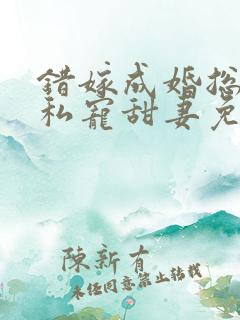 错嫁成婚总
私宠甜妻免
陳新有
未经同意禁止转载